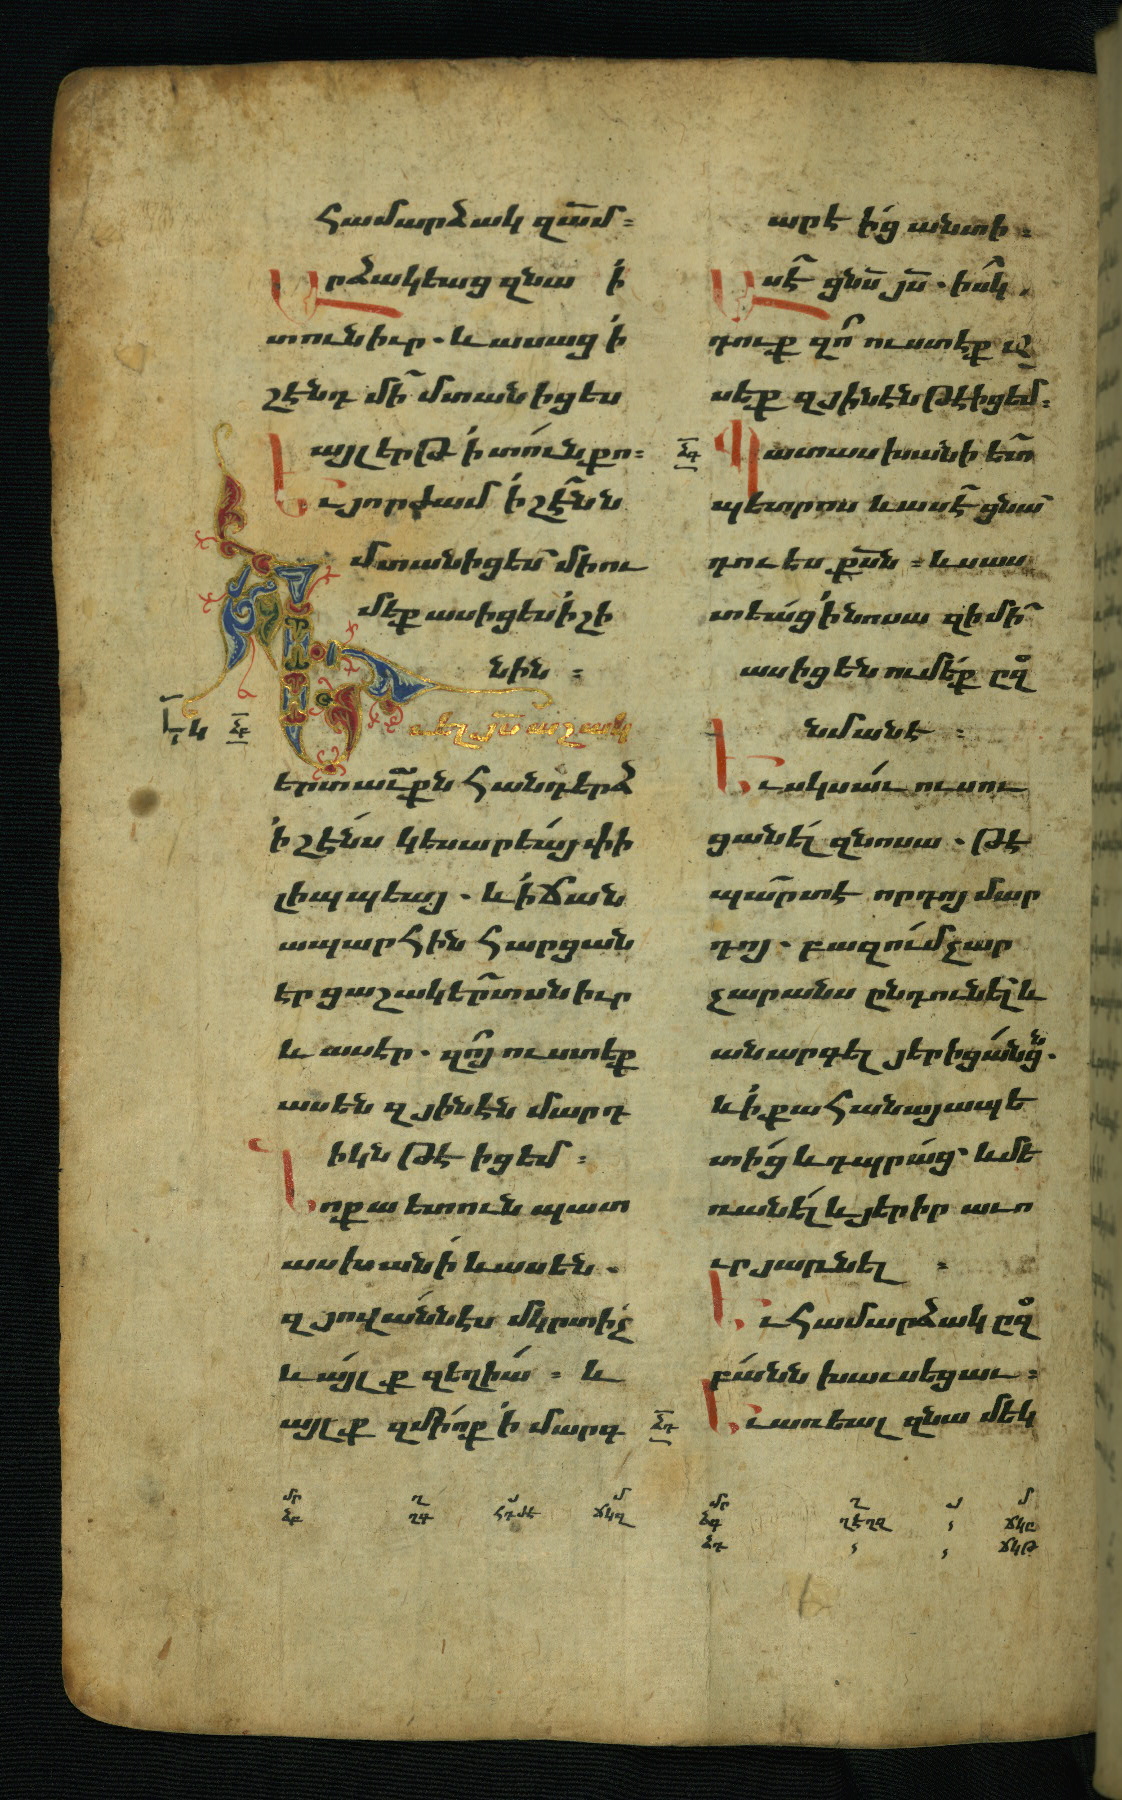 Համարձակ զամ֊
Արձակեաց զնա ի
տունիւր. և ասաց ի
շէնդ մի մտանիցես
այլ երթ ի տուն քո։
Եւ յորժամ ի շէնն
մտանիցես միու
մեք ասիցես ի շի
նին ։
Եւ ել յս աշակ
երտաւքն հանդերձ
ի շէնս կեսարեայ փի
լիպպեայ. և ի ճան
ապարհին հարցան
էր ցաշակերտսն իւր
և ասէր. զոյ ումտեք
ասեն զյինէն մարդ
իկն թէ իցեմ։
Նոքա ետուն պատ
ասխանի և ասեն.
զյովաննէս մկրտիչ
և այլք զեղիա ։ և
այլք զմիոք ի մարգ
արէ ից անտի ։
Ասէ ցնս յս. իսկ
դուք զո ումտեք աս
սեք զյինէն թէ իցեմ։
Պատասխանի ետ
պետրոս և ասէ ցնա
դու ես քսն ։ և սաս
տեաց ի նոսա զի մի
ասիցեն ումեք ըզ
նմանէ ։
Եւ սկսաւ ուսու
ցանել զնոսա. թէ
պարտ է որդոյ մար
դոյ. բազում չար
չարանս ընդունել և
անարգել յերիցանց.
և ի քահանայապե
տից և դպրաց՝ և մե
ռանել և յերիր աւո
ւր յառնել ։
Եւ համարձակ ըզ
բանն խաւսեցաւ ։
Եւ առեալ զնա մեկ